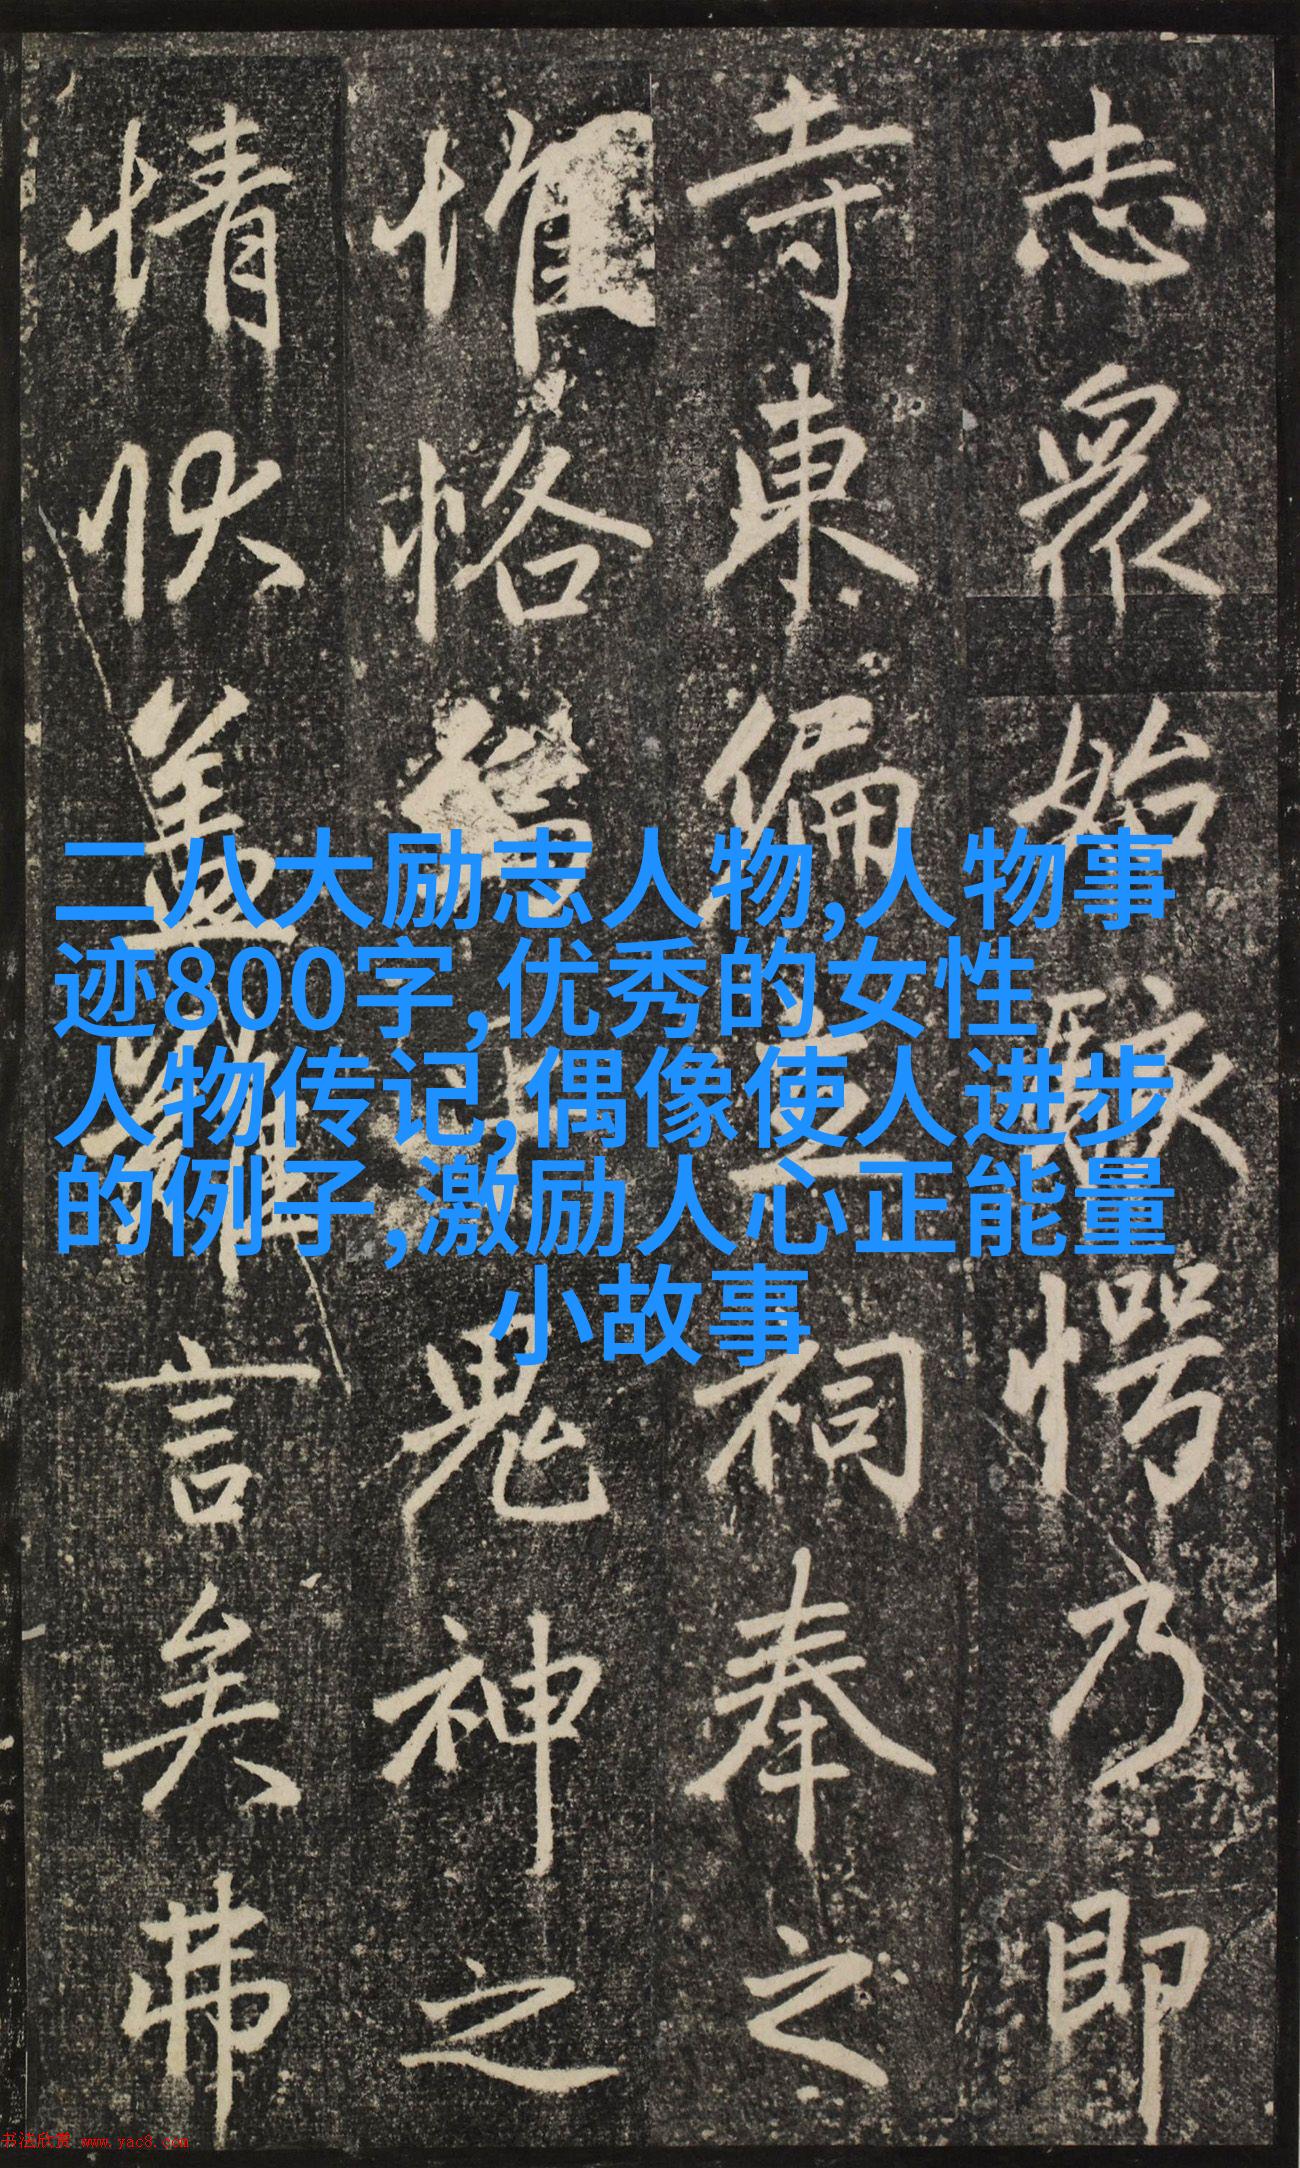 志衆始駭愕乃即
寺東編立祠奉之
惟恪 鬼神之
情伏蓋難言矣弗
二八大励志人物,人物事
迹800字,优秀的女性
人物传记,偶像使人进步
的例子,激励人心正能量
小故事
书法欣赏 www.yac8.com